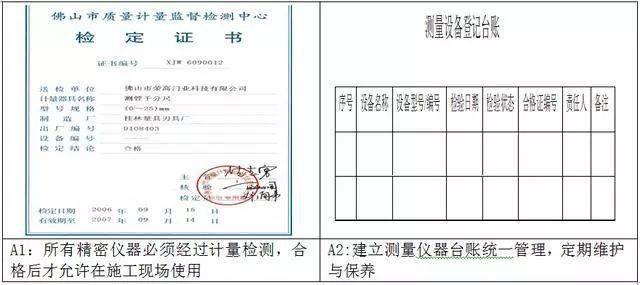 佛山市质量计量监督检测中心
检定证书
证书编号 XJW 6090012
送检单位 佛山市荣高门业科技有限公司
计量器具名称 测管千分尺
型号规格 (0—25)mm
制造厂 桂林量具刃具厂
出厂编号 0108403
设备编号
检定结论 合格
主
核验
检定
检定日期 2006 年 09 月 15 日
有效期至 2007 年 09 月 14 日
A1：所有精密仪器必须经过计量检测，合
格后才允许在施工现场使用
测量设备登记台账
序号 设备名称 设备型号/编号 检验日期 检验状态 合格证编号 责任人 备注
A2:建立测量仪器台账统一管理，定期维护
与保养